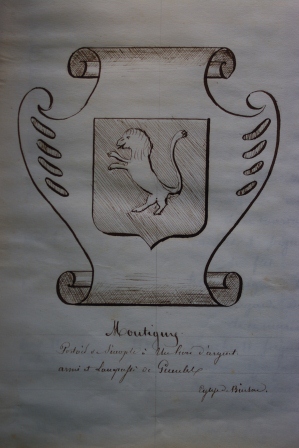 Montigny
Portoit de Sinople à Un Lion d'argent
armé et Lampassé de Gueules
Eglise de